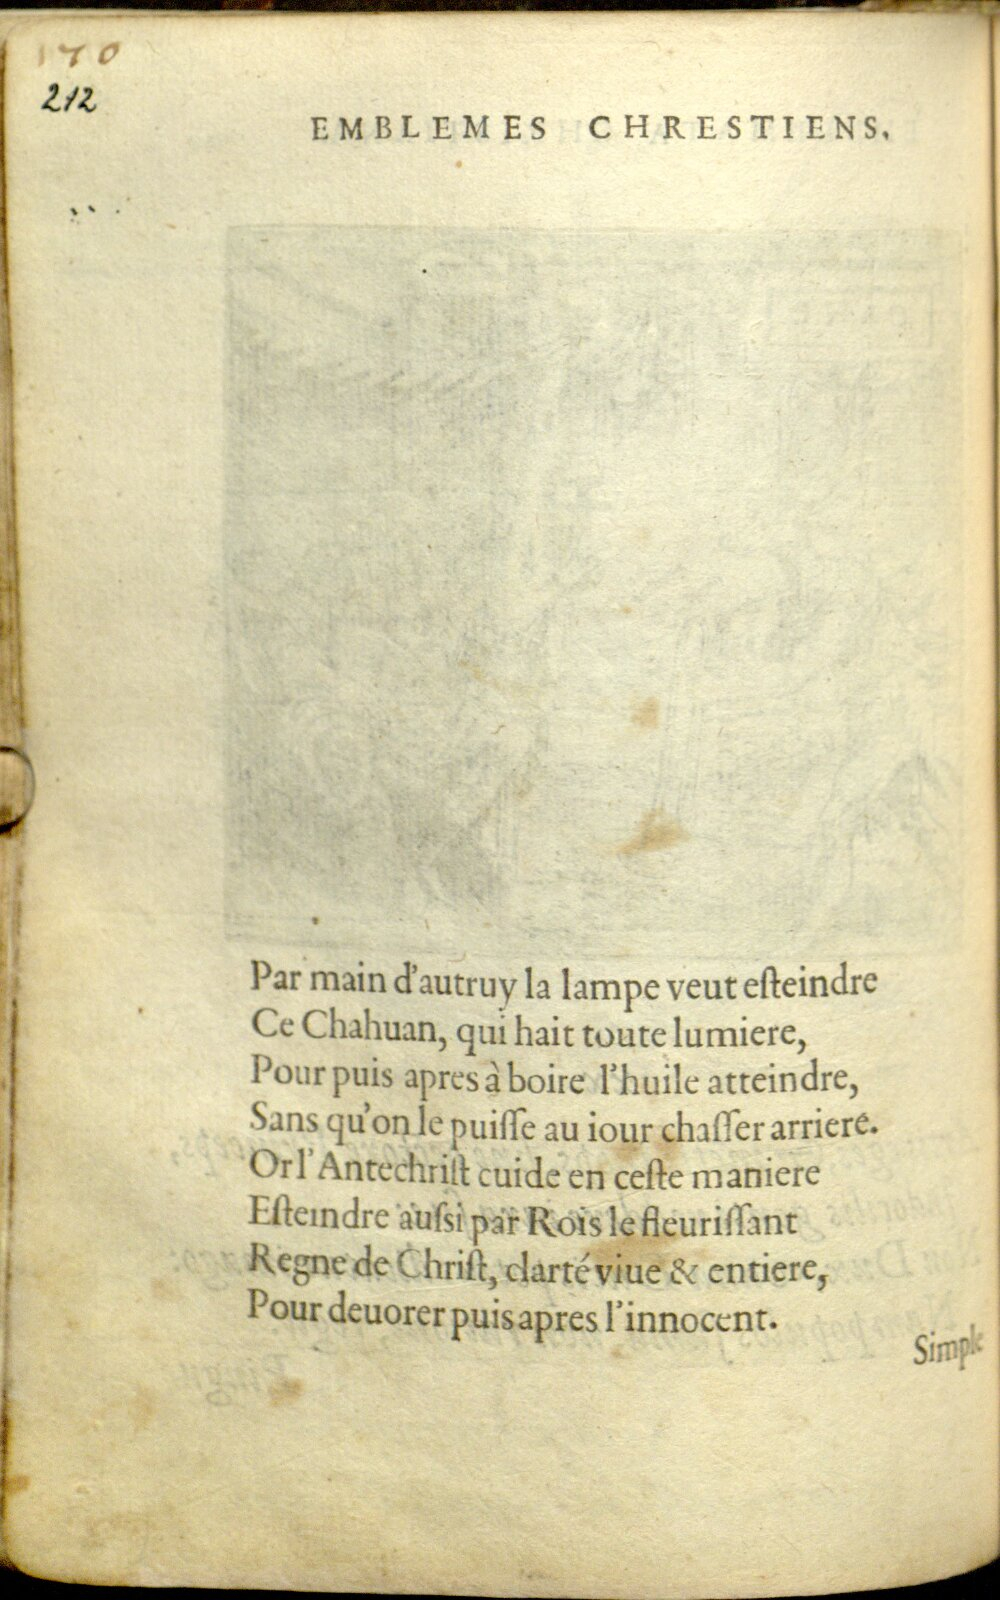 170
212
EMBLEMES CHRESTIENS.
Par main d'autruy la lampe veut eſteindre
Ce Chahuan, qui hait toute lumiere,
Pour puis apres à boire l'huile atteindre,
Sans qu'on le puiſſe au iour chaſſer arriere.
Or l'Antechriſt cuide en ceſte maniere
Eſteindre auſsi par Rois le fleuriſſant
Regne de Chriſt, clarté viue & entiere,
Pour deuorer puis apres l'innocent.
Simple